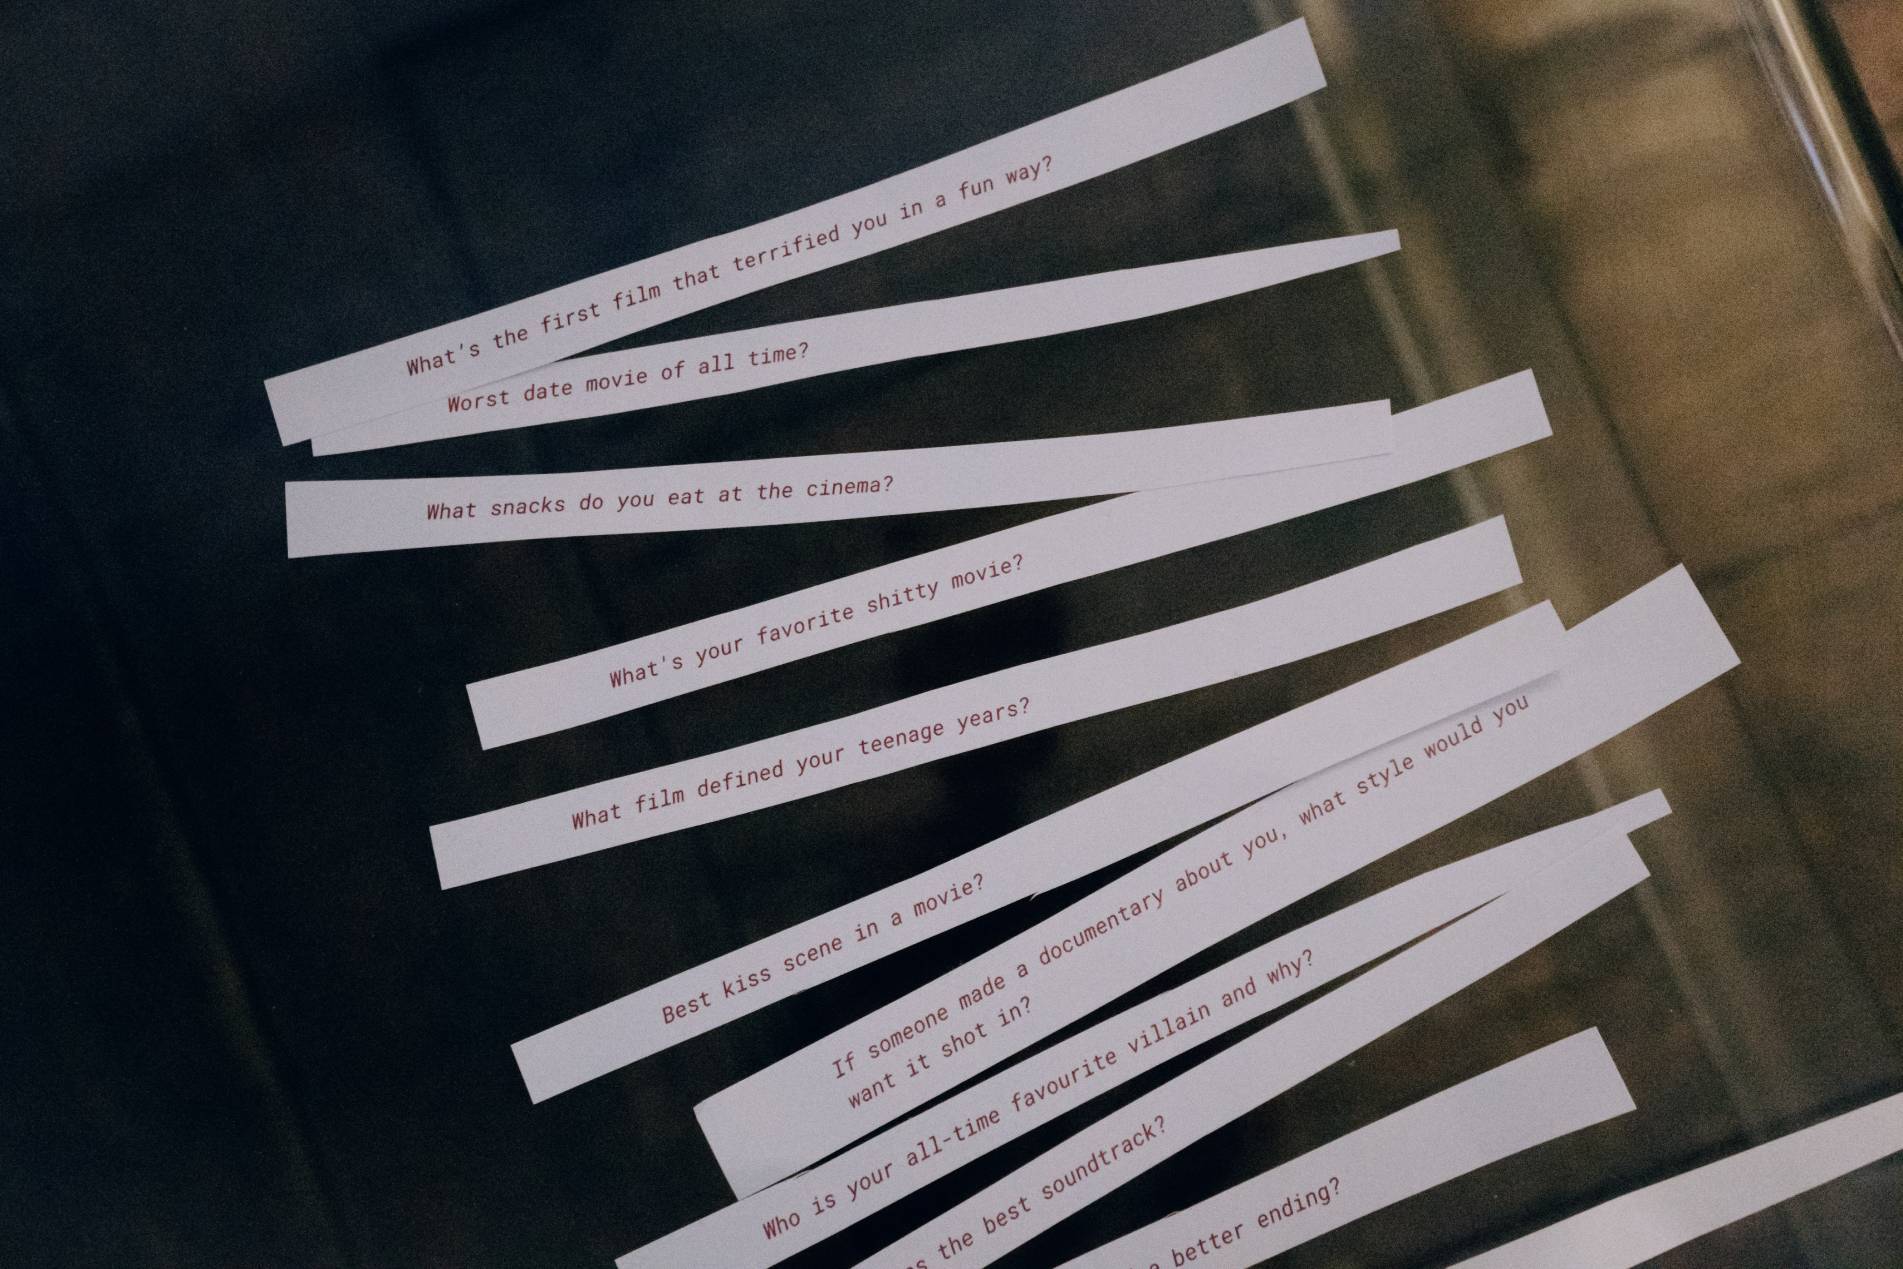 What's the first film that terrified you in a fun way?
Worst date movie of all time?
What snacks do you eat at the cinema?
What's your favorite shitty movie?
What film defined your teenage years?
Best kiss scene in a movie?
If someone made a documentary about you, what style would you
want it shot in?
Who is your all-time favourite villain and why?
the best soundtrack?
better ending?